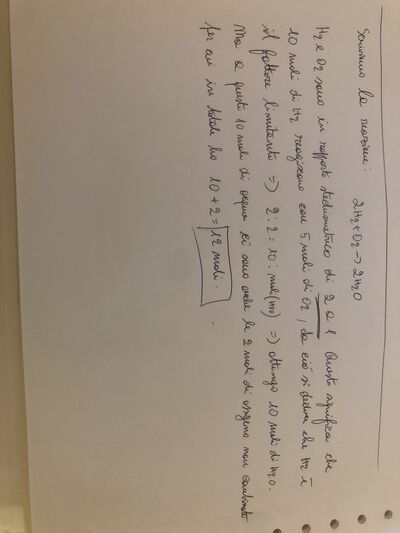 Scriviamo la reazione: 2H2 + O2 → 2H2O
H2 e O2 sono in rapporto stechiometrico di 2 a 1. Questo significa che
10 moli di H2 reagiscono con 5 moli di O2, da ciò si deduce che H2 è
il fattore limitante => 2 : 2 = 10 : moli(H2O) => ottengo 10 moli di H2O.
Ma a queste 10 moli di acqua ci sono anche le 2 moli di ossigeno non combinato
per cui in totale ho 10 + 2 = 12 moli.